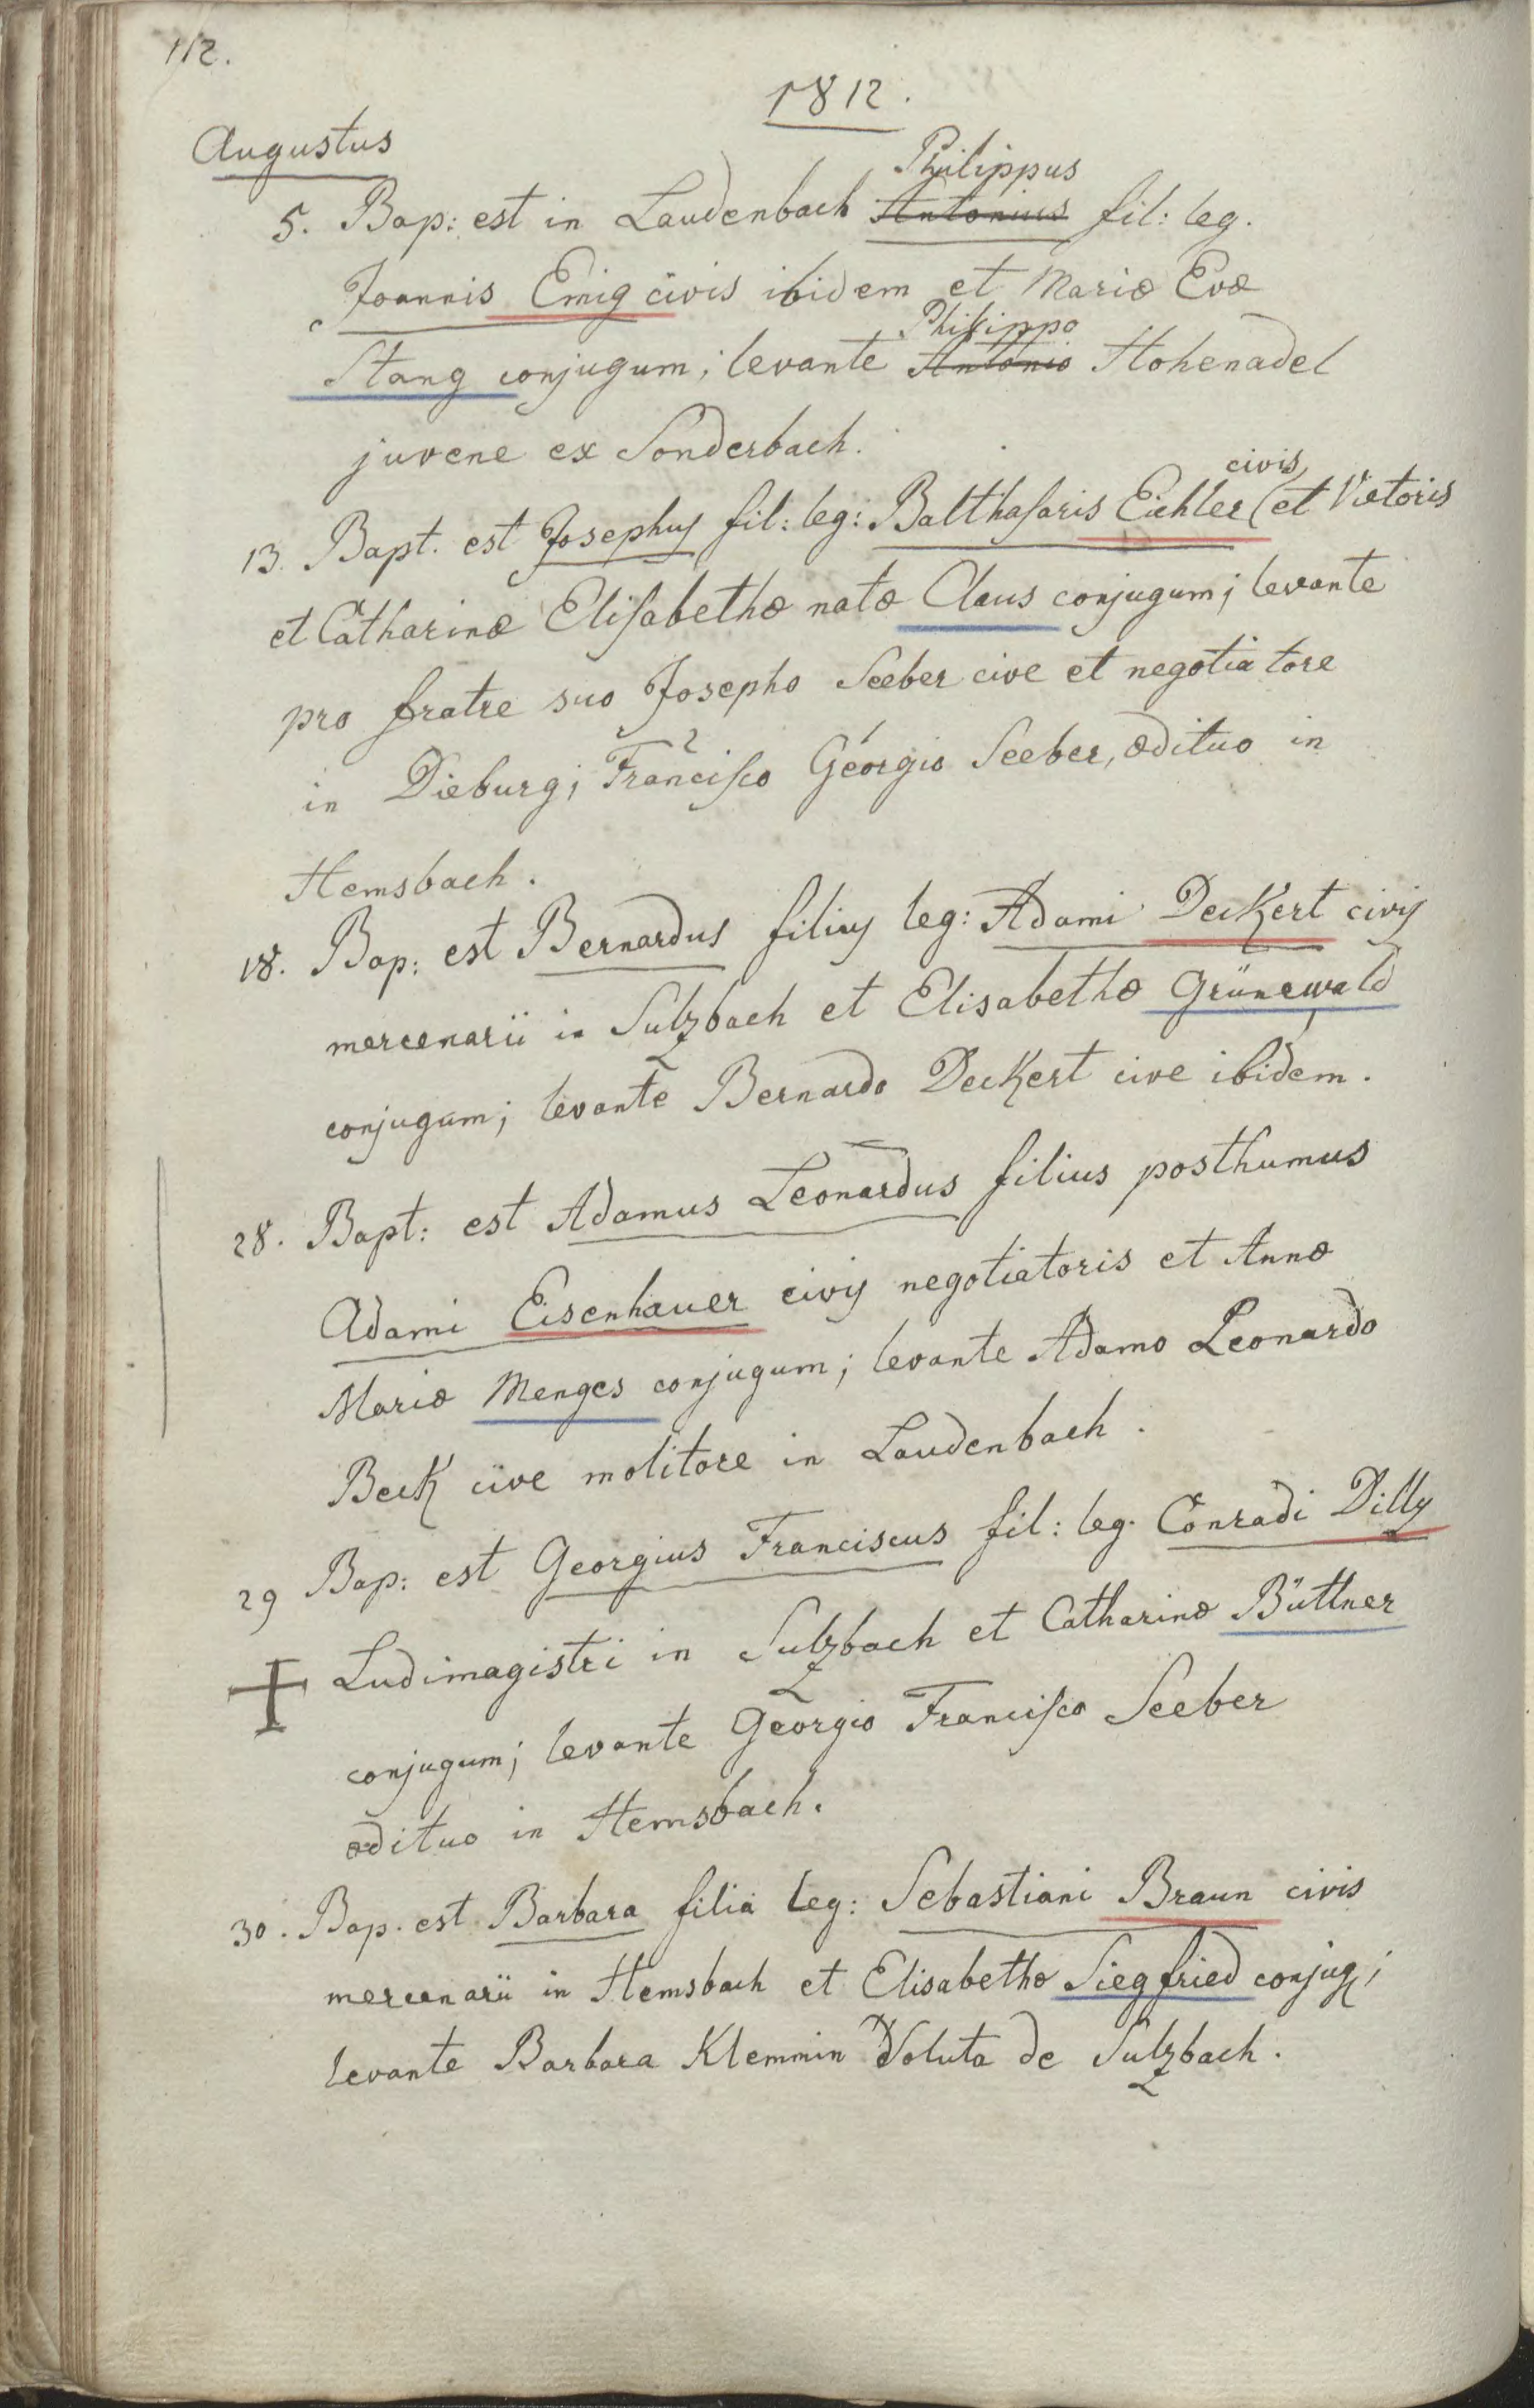 112.
1812.
Augustus
Philippus
5. Bap: est in Laudenbach Antonius fil: leg.
Joannis Emig civis ibidem et Mariæ Evæ
Philippo
Stang conjugum; levante Antonio Hohenadel
juvene ex Sonderbach.
civis
13. Bapt. est Josephus fil: leg: Balthasaris Eichler et Vietoris
et Catharinæ Elisabethæ natæ Claus conjugum; levante
pro fratre suo Josepho Seeber cive et negotiatore
2 1
in Dieburg; Francisco Georgio Seeber, ædituo in
Hemsbach.
18. Bap: est Bernardus filius leg: Adami Deckert civis
mercenarii in Sulzbach et Elisabethæ Grünewald
conjugum; levante Bernardo Deckert cive ibidem.
28. Bapt: est Adamus Leonardus filius posthumus
Adami Eisenhauer civis negotiatoris et Annæ
Mariæ Menges conjugum; levante Adamo Leonardo
Beck cive molitore in Laudenbach.
29 Bap: est Georgius Franciscus fil: leg. Conradi Dilly
Ludimagistri in Sulzbach et Catharinæ Büttner
conjugum; levante Georgio Francisco Seeber
ædituo in Hemsbach.
30. Bap. est Barbara filia leg: Sebastiani Braun civis
mercenarii in Hemsbach et Elisabethæ Siegfried conjug;
levante Barbara Klemmin Soluta de Sulzbach.